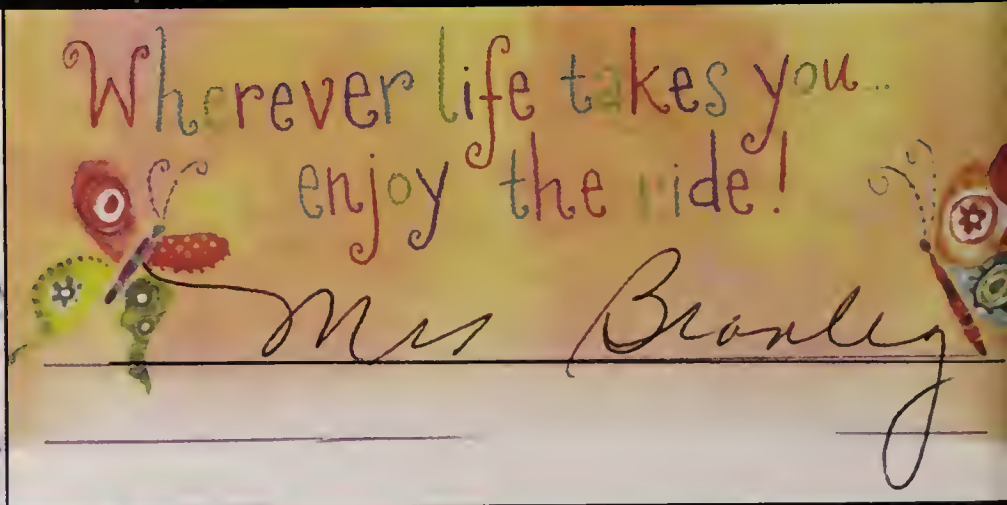 Wherever life takes you...
enjoy the ride!
Mrs Branley